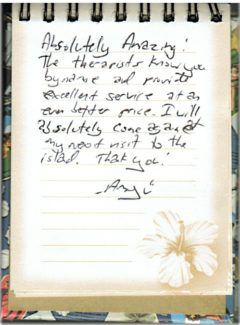 Absolutely Amazing!
The therapists know you
by name and provide
excellent service at an
even better price. I will
absolutely come again at
my next visit to the
island. Thank you!
- Angi